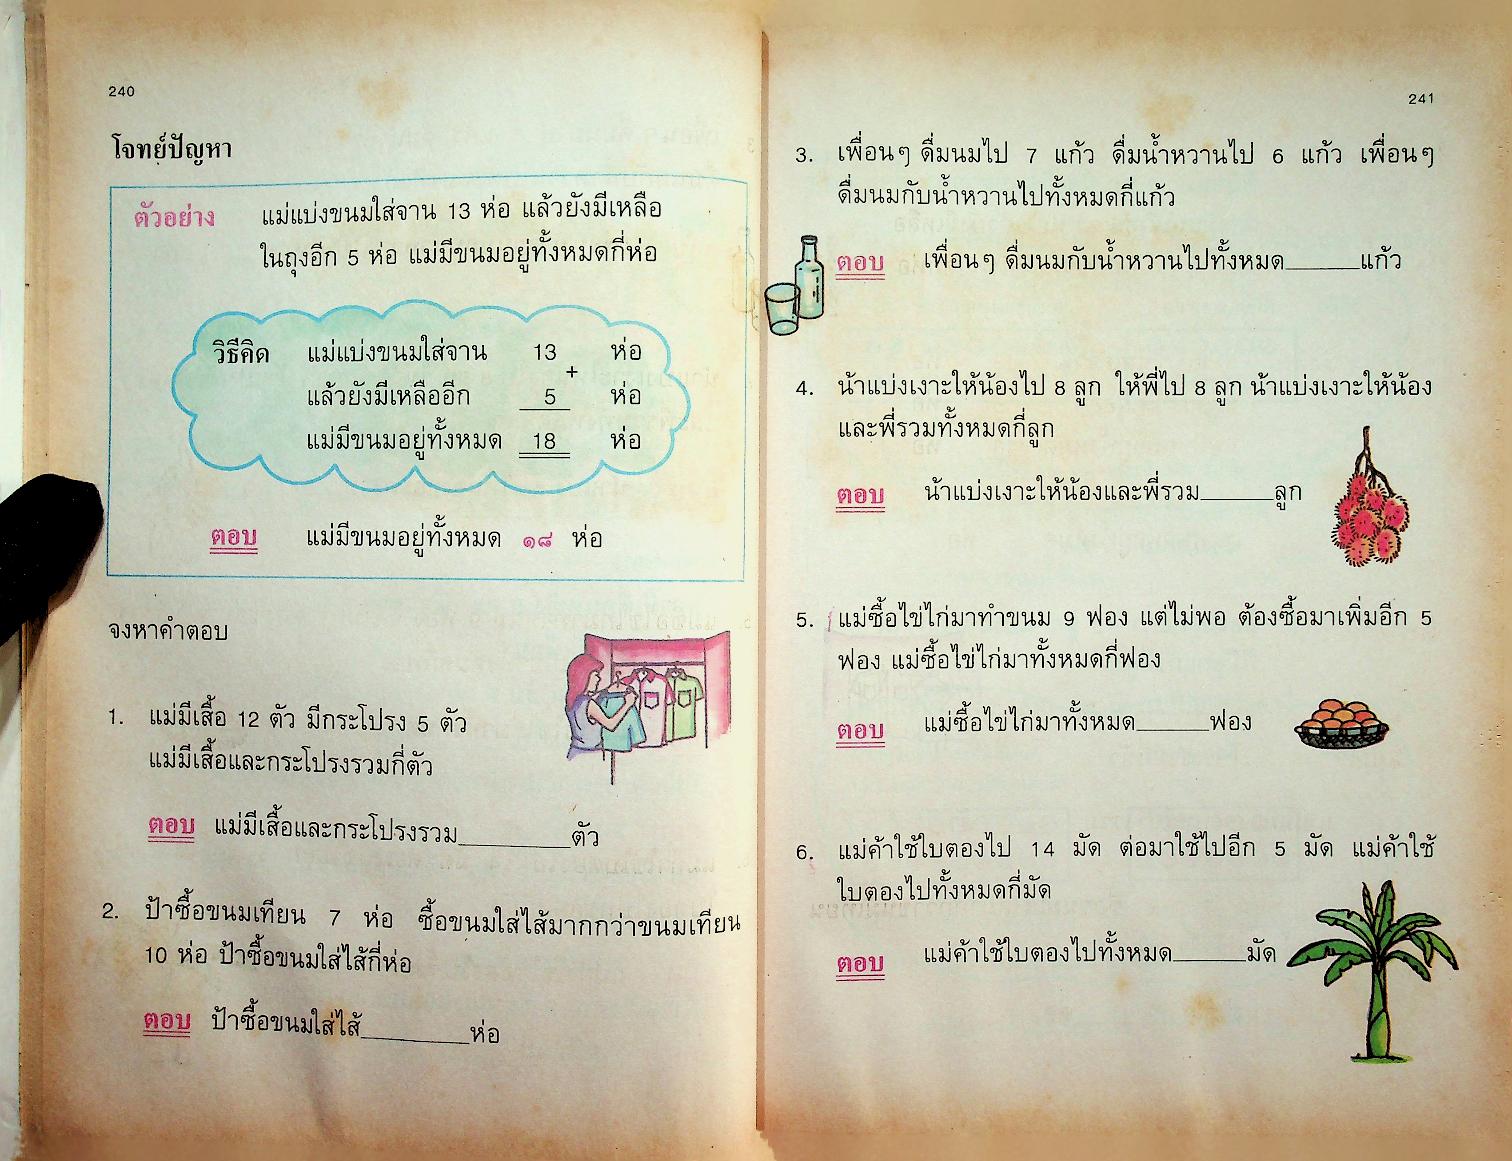 240
โจทย์ปัญหา
ตัวอย่าง แม่แบ่งขนมใส่จาน 13 ห่อ แล้วยังมีเหลือ
ในถุงอีก 5 ห่อ แม่มีขนมอยู่ทั้งหมดกี่ห่อ
วิธีคิด แม่แบ่งขนมใส่จาน 13 ห่อ
+
แล้วยังมีเหลืออีก 5 ห่อ
แม่มีขนมอยู่ทั้งหมด 18 ห่อ
ตอบ แม่มีขนมอยู่ทั้งหมด ๑๘ ห่อ
จงหาคำตอบ
1. แม่มีเสื้อ 12 ตัว มีกระโปรง 5 ตัว
แม่มีเสื้อและกระโปรงรวมกี่ตัว
ตอบ แม่มีเสื้อและกระโปรงรวม________ตัว
2. ป้าซื้อขนมเทียน 7 ห่อ ซื้อขนมใส่ไส้มากกว่าขนมเทียน
10 ห่อ ป้าซื้อขนมใส่ไส้กี่ห่อ
ตอบ ป้าซื้อขนมใส่ไส้________ห่อ
241
3. เพื่อนๆ ดื่มนมไป 7 แก้ว ดื่มน้ำหวานไป 6 แก้ว เพื่อนๆ
ดื่มนมกับน้ำหวานไปทั้งหมดกี่แก้ว
ตอบ เพื่อนๆ ดื่มนมกับน้ำหวานไปทั้งหมด______แก้ว
4. น้าแบ่งเงาะให้น้องไป 8 ลูก ให้พี่ไป 8 ลูก น้าแบ่งเงาะให้น้อง
และพี่รวมทั้งหมดกี่ลูก
ตอบ น้าแบ่งเงาะให้น้องและพี่รวม______ลูก
5. แม่ซื้อไข่ไก่มาทำขนม 9 ฟอง แต่ไม่พอ ต้องซื้อมาเพิ่มอีก 5
ฟอง แม่ซื้อไข่ไก่มาทั้งหมดกี่ฟอง
ตอบ แม่ซื้อไข่ไก่มาทั้งหมด______ฟอง
6. แม่ค้าใช้ใบตองไป 14 มัด ต่อมาใช้ไปอีก 5 มัด แม่ค้าใช้
ใบตองไปทั้งหมดกี่มัด
ตอบ แม่ค้าใช้ใบตองไปทั้งหมด______มัด